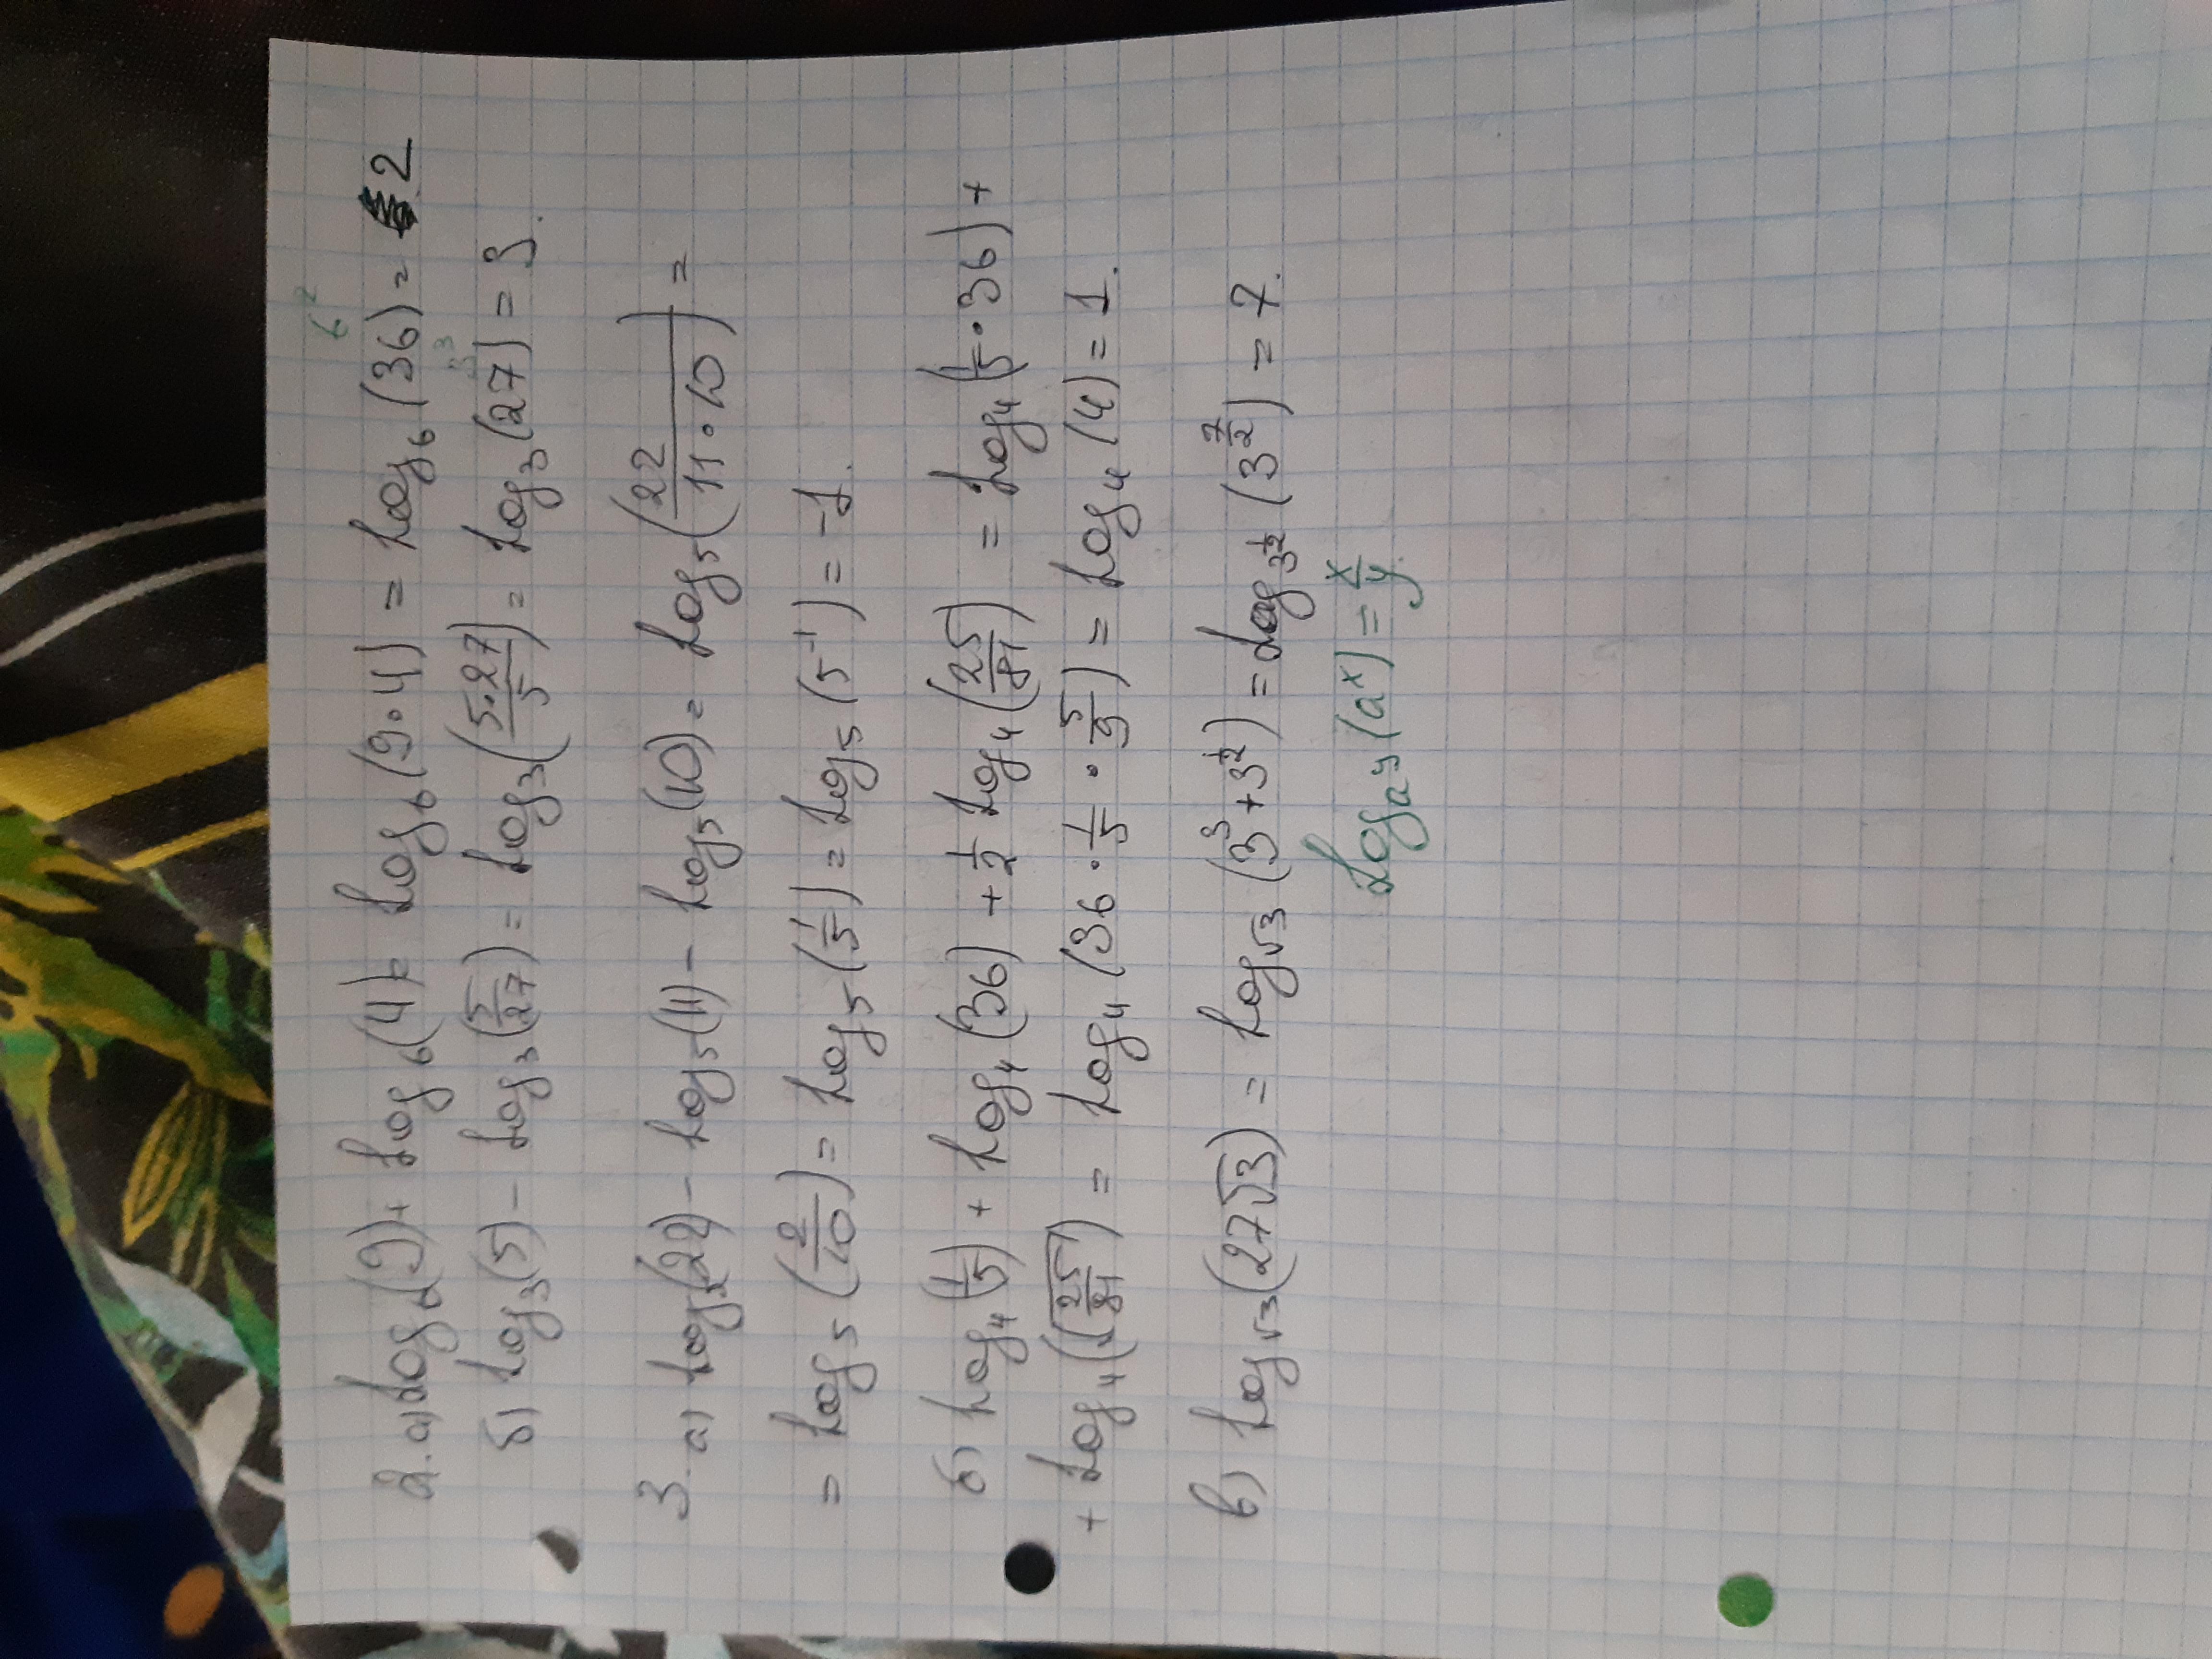 6²
2. а) log₆(9)+ log₆(4)= log₆(9·4) = log₆(36) = 2
3³
б) log₃(5) - log₃(5/27) = log₃(5·27/5) = log₃(27) = 3.
3. а) log₅(22) - log₅(11) - log₅(10) = log₅(22/11·10) =
= log₅(2/10) = log₅(1/5) = log₅(5⁻¹) = -1.
б) log₄(1/5) + log₄(36) + 1/2 log₄(25/81) = log₄(1/5·36) +
+ log₄(√(25/81)) = log₄(36·1/5·5/9) = log₄(4) = 1.
в) log√3(27√3) = log√3(3³+3^(1/2)) = log3^(1/2)(3^(7/2)) = 7.
logaʸ(aˣ) = x/y.